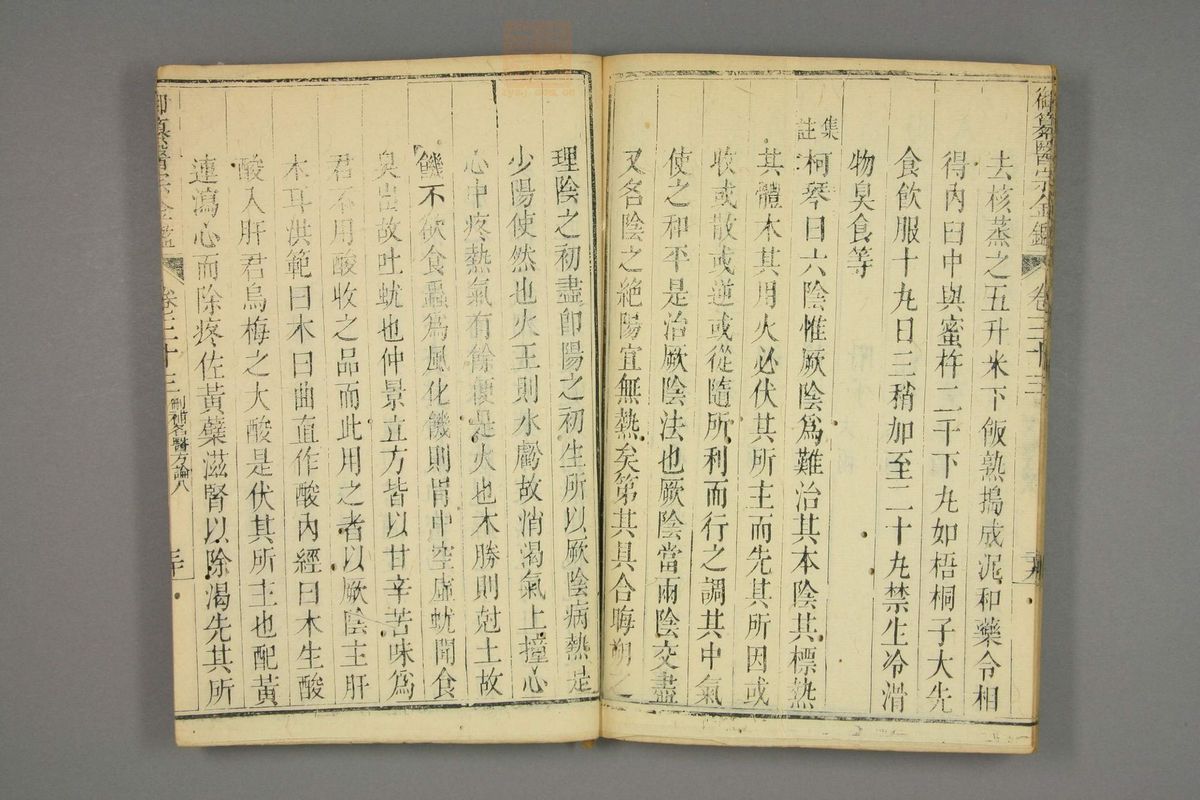 御纂醫宗金鑑 卷三十三
去核蒸之五升米下飯熟搗成泥和藥令相
得內臼中與蜜杵二千下丸如梧桐子大先
食飲服十丸日三稍加至二十丸禁生冷滑
物臭食等
集註
柯琴曰六陰惟厥陰為難治其本陰其標熱
其體木其用火必伏其所主而先其所因或
收或散或逆或從隨所利而行之調其中氣
使之和平是治厥陰法也厥陰當兩陰交盡
又名陰之絶陽宜無熱矣第其具合晦朔之
理陰之初盡卽陽之初生所以厥陰病熱是
少陽使然也火王則水虧故消渴氣上撞心
心中疼熱氣有餘便是火也木勝則尅土故
饑不欲食蟲為風化饑則胃中空虛蚘聞食
臭出故吐蚘也仲景立方皆以甘辛苦味為
君不用酸收之品而此用之者以厥陰主肝
木耳洪範曰木曰曲直作酸內經曰木生酸
酸入肝君烏梅之大酸是伏其所主也配黃
連瀉心而除疼佐黃蘗滋腎以除渴先其所
御纂醫宗金鑑 卷三十三 刪補名醫方論八 三十